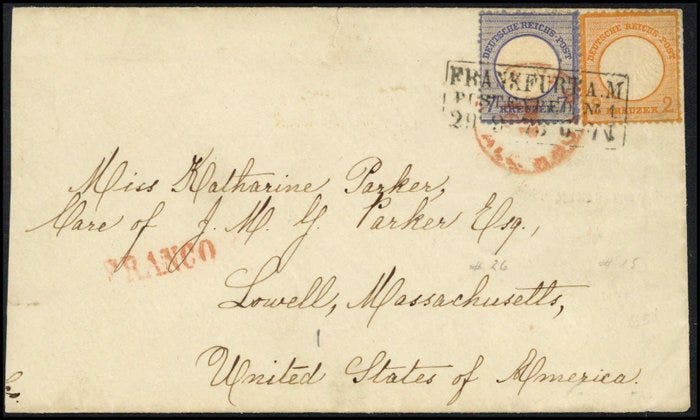 DEUTSCHE REICHS-POST
DEUTSCHE REICHS-POST
7 KREUZER 7
KREUZER 2
FRANKFURT A.M
Miss Katharine Parker,
Care of J. M. G. Parker Esq.,
FRANCO
# 26 # 15
Lowell, Massachusetts,
1
United States of America.